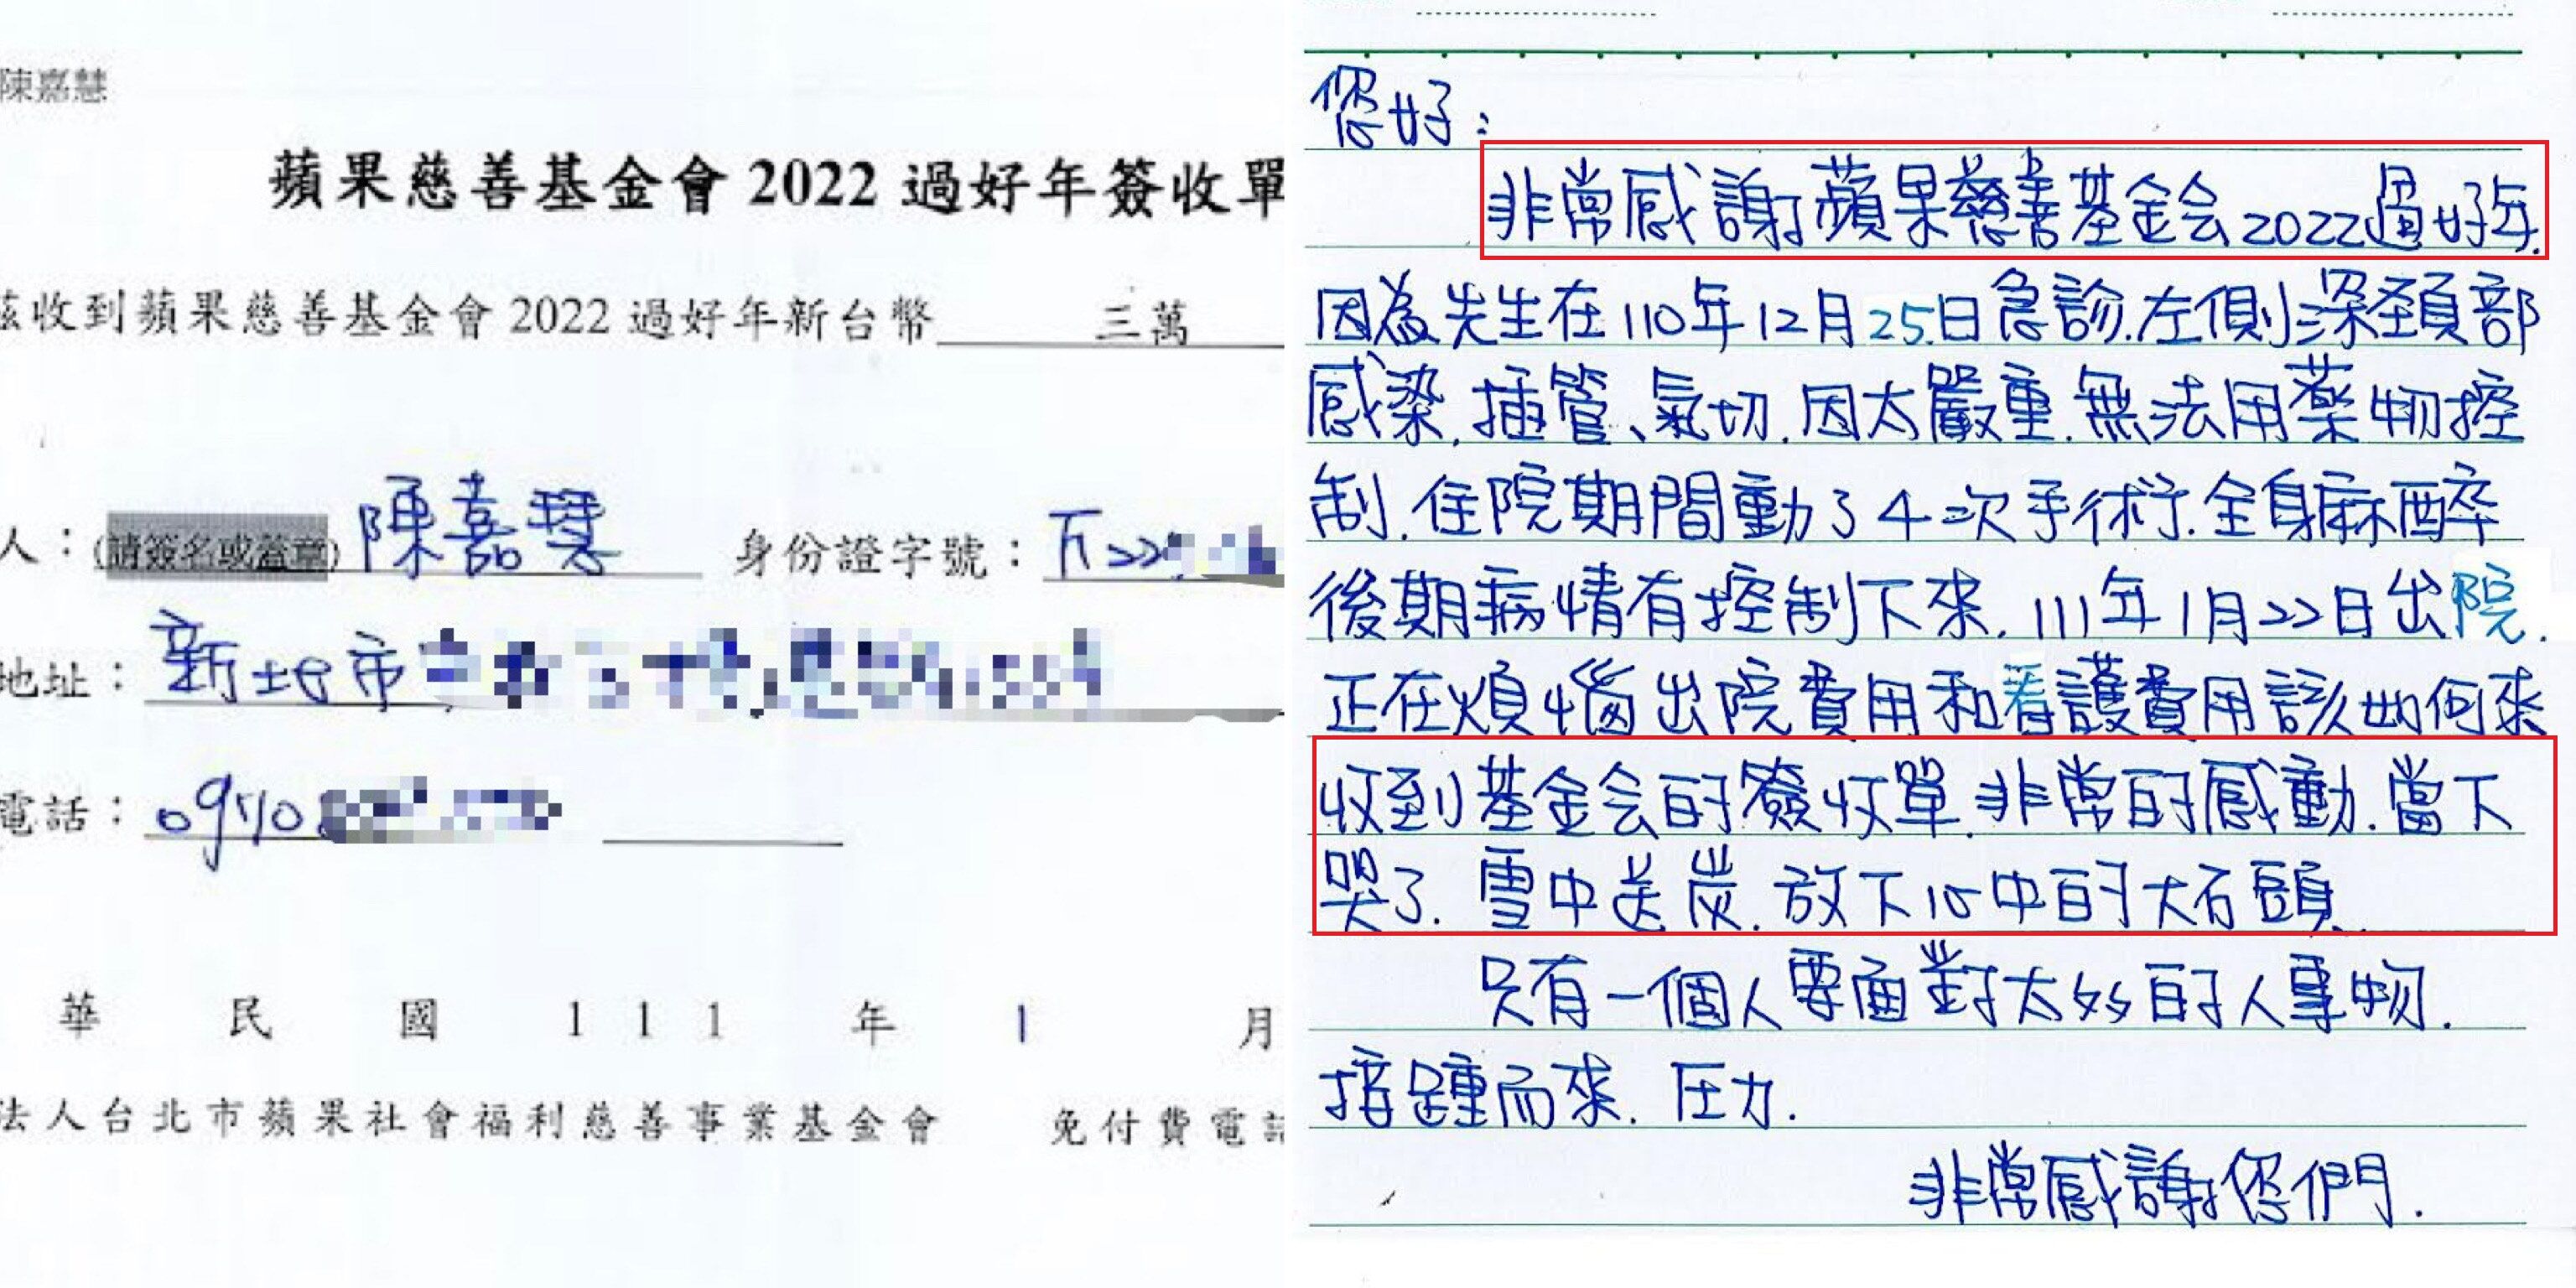 陳嘉慧
蘋果慈善基金會 2022 過好年簽收單
茲收到蘋果慈善基金會 2022 過好年新台幣 三萬
人：(請簽名或蓋章) 陳嘉慧 身份證字號：F22
地址：新北市
電話：0970
華 民 國 1 1 1 年 1 月
法人台北市蘋果社會福利慈善事業基金會 免付費電話
您好：
非常感謝蘋果慈善基金会2022過好年.
因為先生在110年12月25日急診.左側深頸部
感染.插管、氣切.因太嚴重.無法用藥物控
制.住院期間動了4次手術.全身麻醉
後期病情有控制下來.111年1月22日出院.
正在煩惱出院費用和看護費用該如何來
收到基金会的簽收單.非常的感動.當下
哭了.雪中送炭.放下心中的大石頭.
只有一個人要面對太多的人事物.
接踵而來.压力.
非常感謝您們.